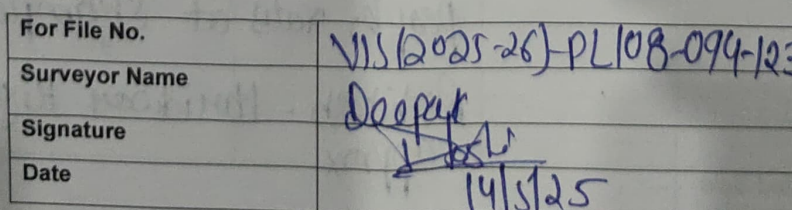 For File No. VIS(2025-26)-PL108-094-123
Surveyor Name Deepak
Signature Joshi
Date 14/5/25